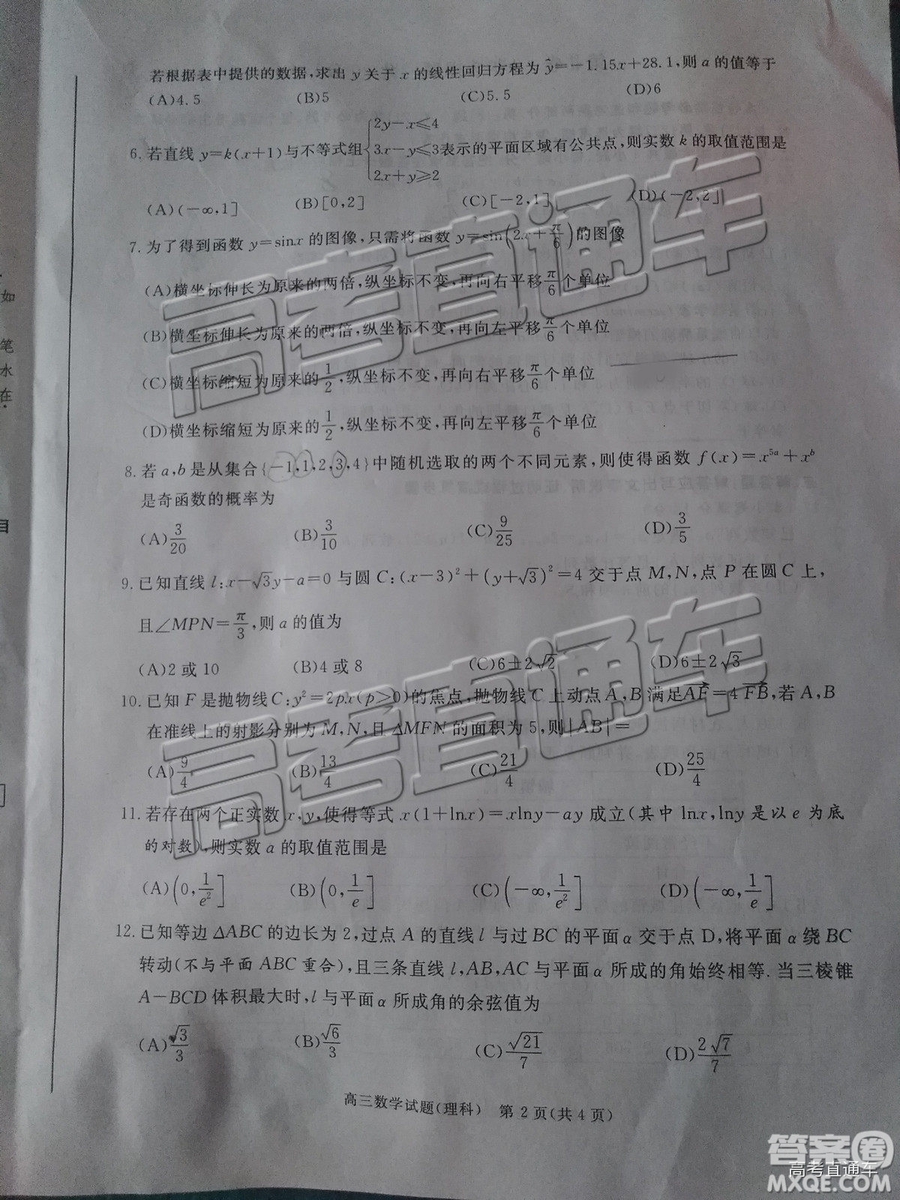 若根据表中提供的数据,求出 y 关于 x 的线性回归方程为 ŷ=-1.15x+28.1,则 a 的值等于
(A)4.5 (B)5 (C)5.5 (D)6
6.若直线 y=k(x+1)与不等式组{2y-x≤4 3x-y≤3 2x+y≥2 表示的平面区域有公共点,则实数 k 的取值范围是
(A)(-∞,1] (B)[0,2] (C)[-2,1] (D)(-2,2]
7.为了得到函数 y=sinx 的图像,只需将函数 y=sin(2x+π/6)的图像
(A)横坐标伸长为原来的两倍,纵坐标不变,再向右平移π/6个单位
(B)横坐标伸长为原来的两倍,纵坐标不变,再向左平移π/6个单位
(C)横坐标缩短为原来的1/2,纵坐标不变,再向右平移π/6个单位
(D)横坐标缩短为原来的1/2,纵坐标不变,再向左平移π/6个单位
8.若 a,b 是从集合{-1,1,2,3,4}中随机选取的两个不同元素,则使得函数 f(x)=x^{5a}+x^b
是奇函数的概率为
(A)3/20 (B)3/10 (C)9/25 (D)3/5
9.已知直线 l:x-√3y-a=0 与圆 C:(x-3)²+(y+√3)²=4 交于点 M,N,点 P 在圆 C 上,
且∠MPN=π/3,则 a 的值为
(A)2 或 10 (B)4 或 8 (C)6±2√2 (D)6±2√3
10.已知 F 是抛物线 C:y²=2px(p>0)的焦点,抛物线 C 上动点 A,B 满足AF=4FB,若 A,B
在准线上的射影分别为 M,N,且 △MFN 的面积为 5,则|AB|=
(A)9/4 (B)13/4 (C)21/4 (D)25/4
11.若存在两个正实数 x,y,使得等式 x(1+lnx)=xlny-ay 成立(其中 lnx,lny 是以 e 为底
的对数),则实数 a 的取值范围是
(A)(0,1/e²] (B)(0,1/e] (C)(-∞,1/e²] (D)(-∞,1/e]
12.已知等边 △ABC 的边长为 2,过点 A 的直线 l 与过 BC 的平面 α 交于点 D,将平面 α 绕 BC
转动(不与平面 ABC 重合),且三条直线 l,AB,AC 与平面 α 所成的角始终相等.当三棱锥
A-BCD 体积最大时,l 与平面 α 所成角的余弦值为
(A)√3/3 (B)√6/3 (C)√21/7 (D)2√7/7
高三数学试题(理科) 第 2 页(共 4 页)
如
笔
水
在
目
高考直通车
高考直通车
答案圈
高考直通车
MXQE.COM